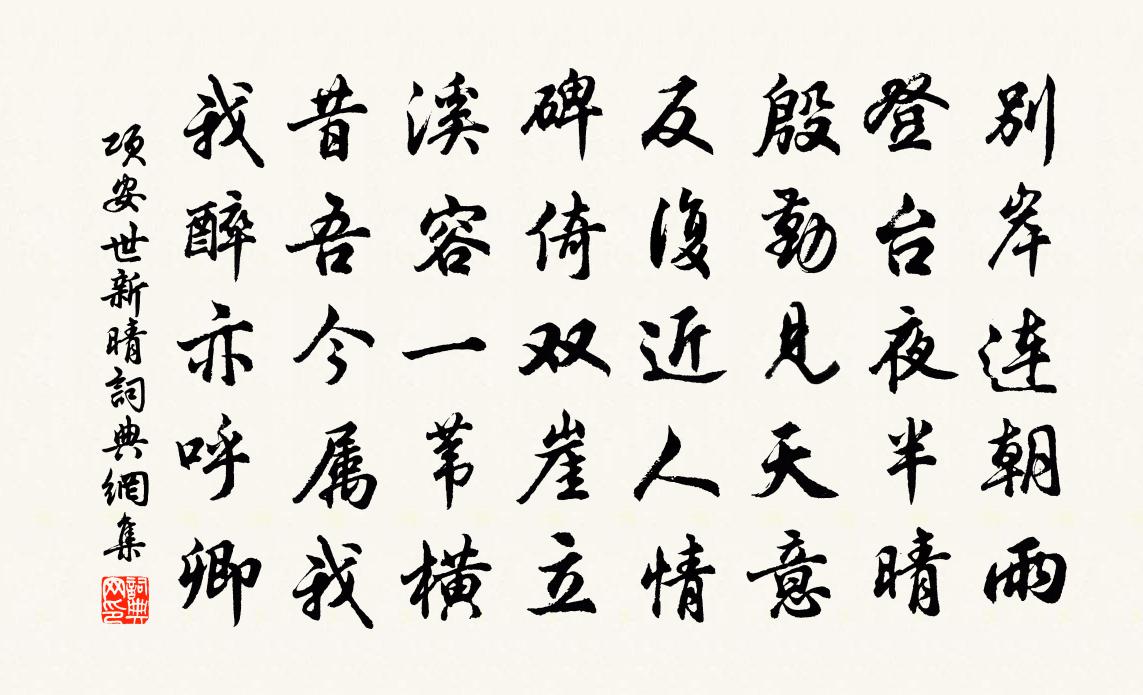 别岸连朝雨
登台夜半晴
殷勤见天意
反復近人情
碑倚双崖立
溪容一苇横
昔吾今属我
我醉亦呼卿
项安世新晴詞典網集
詞典网印